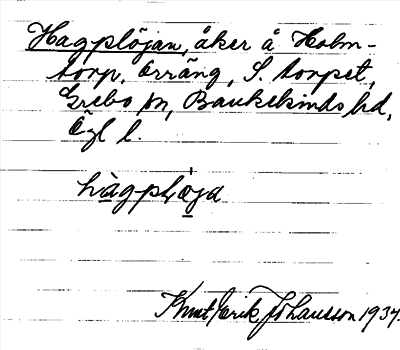 Hagplöjan, åker å Holm-
torp, Erräng, S. torpet,
Grebo sn, Bankekinds hd,
Ögl l.
hàgpḷo̱ja
Knut Erik Johansson 1934.